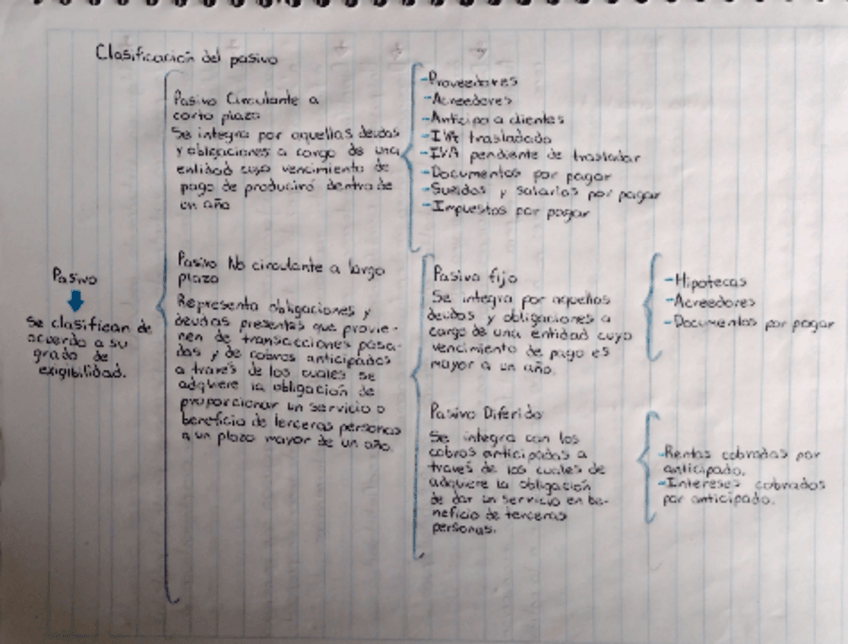 Clasificación del pasivo
Pasivo Circulante a
corto plazo
Se integra por aquellas deudas
y obligaciones a cargo de una
entidad cuyo vencimiento de
pago de producirá dentro de
un año
-Proveedores
-Acreedores
-Anticipo a clientes
-IVA trasladado
-IVA pendiente de trasladar
-Documentos por pagar
-Sueldos y salarios por pagar
-Impuestos por pagar
Pasivo
Se clasifican de
acuerdo a su
grado de
exigibilidad.
Pasivo No circulante a largo
plazo
Representa obligaciones y
deudas presentes que provie-
nen de transacciones pasa-
das y de cobros anticipados
a través de los cuales se
adquiere la obligación de
proporcionar un servicio o
beneficio de terceras personas
a un plazo mayor de un año.
Pasivo fijo
Se integra por aquellas
deudas y obligaciones a
cargo de una entidad cuyo
vencimiento de pago es
mayor a un año.
-Hipotecas
-Acreedores
-Documentos por pagar
Pasivo Diferido
Se integra con los
cobros anticipados a
través de los cuales de
adquiere la obligación
de dar un servicio en be-
neficio de terceras
personas.
-Rentas cobradas por
anticipado.
-Intereses cobrados
por anticipado.